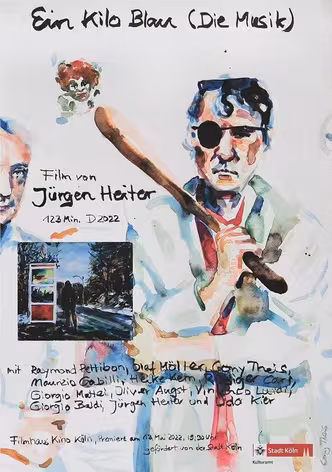 Ein Kilo Blau (Die Musik)
Film von
Jürgen Heiter
123 Min. D 2022
mit Raymond Pettibon, Olaf Möller, Cony Theis,
Maurizio Heike Kern, Rüdiger Carl,
Giorgio Oliver Augst,
Giorgio Baldi, Jürgen Heiter und Udo Kier
Filmhaus Kino Köln, Premiere am Mai 2022, 19.30 Uhr
gefördert von der Stadt Köln
Stadt Köln
Kulturamt
Cony Theis